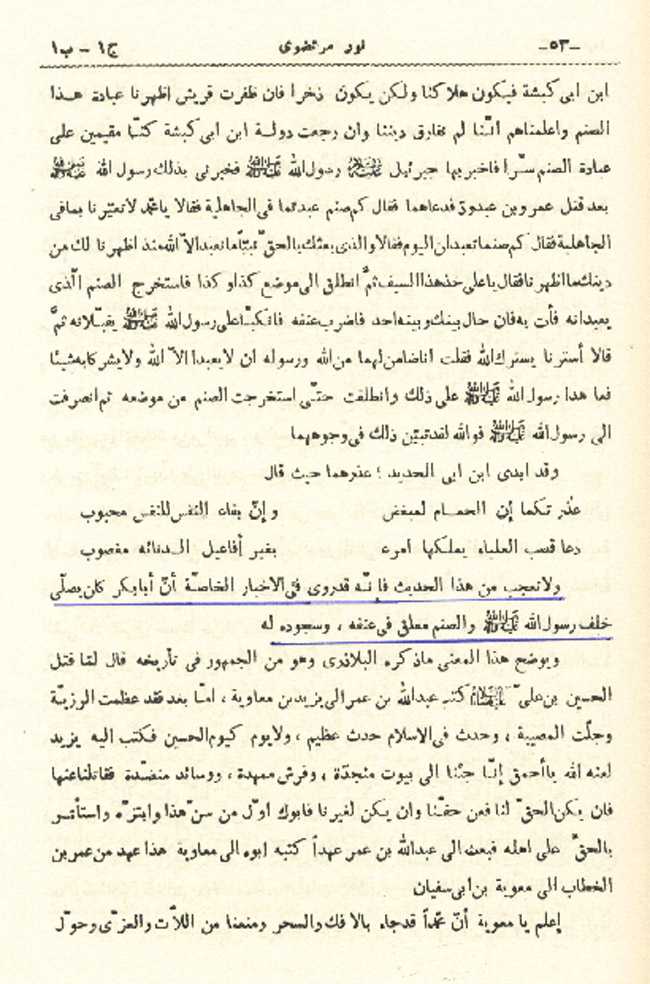 -٥٣- نور مرتضوى ج١ - ب١
ابن ابى كبشة فيكون هلاكنا ولكن يكون ذخرا فان ظفرت قريش اظهرنا عبادة هذا
الصنم واعلمناهم انّنا لم نفارق ديننا وان رجعت دولة ابن ابى كبشة كنّا مقيمين على
عبادة الصنم سرّاً فاخبر بها جبرئيل عليه السلام رسول الله ﷺ فخبرنى بذلك رسول الله ﷺ
بعد قتل عمرو بن عبدود فدعاهما فقال كم صنم عبدتما فى الجاهلية فقالا يا محمد لا تعيّرنا بما فى
الجاهلية فقال كم صنما تعبدان اليوم فقالا والذى بعثك بالحقّ نبيّا ما نعبد الاّ الله منذ اظهرنا لك من
دينك ما اظهرنا فقال يا على خذ هذا السيف ثمّ انطلق الى موضع كذا و كذا فاستخرج الصنم الّذى
يعبدانه فأت به فان حال بينك وبينه احد فاضرب عنقه فانكبّا على رسول الله ﷺ يقبّلانه ثمّ
قالا أسترنا يسترك الله فقلت انا ضامن لهما من الله ورسوله ان لا يعبدا الاّ الله ولا يشركا به شيئا
فعاهدا رسول الله ﷺ على ذلك وانطلقت حتّى استخرجت الصنم من موضعه ثم انصرفت
الى رسول الله ﷺ فوالله لقد تبيّن ذلك فى وجوههما
وقد ابدى ابن ابى الحديد ؛ عذرهما حيث قال
عذرتكما إن الحمام لمبغض وإنّ بقاء النفس للنفس محبوب
دعا قصب العلياء يملكها امرء بغير أفاعيل الدنائه مغصوب
ولا تعجب من هذا الحديث فانّه قد روى فى الاخبار الخاصّة أنّ أبا بكر كان يصلّى
خلف رسول الله ﷺ والصنم معلق فى عنقه ، وسجوده له
ويوضح هذا المعنى ما ذكره البلاذرى وهو من الجمهور فى تأريخه قال لمّا قتل
الحسين بن علىّ عليه السلام كتب عبدالله بن عمر الى يزيد بن معاوية ، امّا بعد فقد عظمت الرزيّة
وجلّت المصيبة ، وحدث فى الاسلام حدث عظيم ، ولا يوم كيوم الحسين فكتب اليه يزيد
لعنه الله يا أحمق إنّا جئنا الى بيوت منجدّة ، وفرش ممهدة ، ووسائد منضّدة فقاتلنا عنها
فان يكن الحقّ لنا فعن حقّنا وان يكن لغيرنا فابوك اوّل من سنّ هذا وابتزّه واستأثر
بالحقّ على اهله فبعث الى عبدالله بن عمر عهداً كتبه ابوه الى معاوية هذا عهد من عمر بن
الخطاب الى معوية بن ابى سفيان
إعلم يا معوية أنّ محمّداً قد جاء بالافك والسحر ومنعنا من اللاّت والعزّى وحوّل